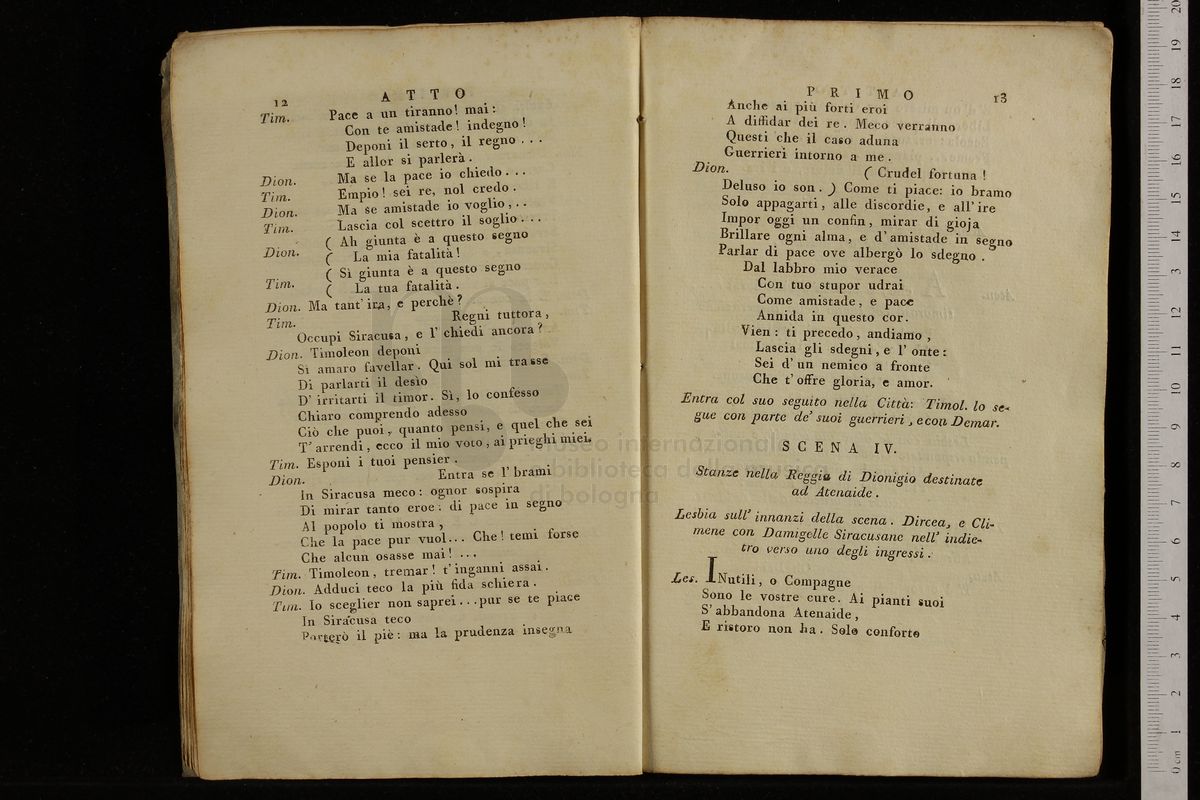 12 ATTO
Tim. Pace a un tiranno! mai:
Con te amistade! indegno!
Deponi il serto, il regno . . .
E allor si parlerà.
Dion. Ma se la pace io chiedo . . .
Tim. Empio! sei re, nol credo.
Dion. Ma se amistade io voglio, . .
Tim. Lascia col scettro il soglio . . .
( Ah giunta è a questo segno
Dion. ( La mia fatalità!
( Sì giunta è a questo segno
Tim. ( La tua fatalità.
Dion. Ma tant' ira, e perchè?
Tim. Regni tuttora,
Occupi Siracusa, e l' chiedi ancora?
Dion. Timoleon deponi
Sì amaro favellar. Qui sol mi trasse
Di parlarti il desìo
D' irritarti il timor. Sì, lo confesso
Chiaro comprendo adesso
Ciò che puoi, quanto pensi, e quel che sei
T' arrendi, ecco il mio voto, ai prieghi miei.
Tim. Esponi i tuoi pensier.
Dion. Entra se l' brami
In Siracusa meco: ognor sospira
Di mirar tanto eroe: di pace in segno
Al popolo ti mostra,
Che la pace pur vuol... Che! temi forse
Che alcun osasse mai! ...
Tim. Timoleon, tremar! t' inganni assai.
Dion. Adduci teco la più fida schiera.
Tim. Io sceglier non saprei...pur se te piace
In Siracusa teco
Porterò il piè: ma la prudenza insegna
PRIMO 13
Anche ai più forti eroi
A diffidar dei re. Meco verranno
Questi che il caso aduna
Guerrieri intorno a me.
Dion. ( Crudel fortuna!
Deluso io son. ) Come ti piace: io bramo
Solo appagarti, alle discordie, e all' ire
Impor oggi un confin, mirar di gioja
Brillare ogni alma, e d' amistade in segno
Parlar di pace ove albergò lo sdegno.
Dal labbro mio verace
Con tuo stupor udrai
Come amistade, e pace
Annida in questo cor.
Vien: ti precedo, andiamo,
Lascia gli sdegni, e l' onte:
Sei d' un nemico a fronte
Che t' offre gloria, e amor.
Entra col suo seguito nella Città: Timol. lo se-
gue con parte de' suoi guerrieri, e con Demar.
SCENA IV.
Stanze nella Reggia di Dionigio destinate
ad Atenaide.
Lesbia sull' innanzi della scena. Dircea, e Cli-
mene con Damigelle Siracusane nell' indie-
tro verso uno degli ingressi.
Les. INutili, o Compagne
Sono le vostre cure. Ai pianti suoi
S' abbandona Atenaide,
E ristoro non ha. Solo conforto
museo internazionale
e biblioteca della musica
di bologna